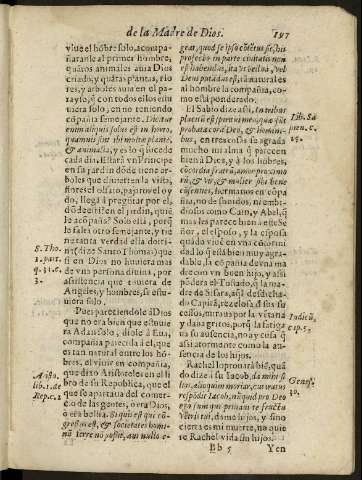 de la Madre de Dios. 197
viue el hõbre solo, acompa-
ñaranle al primer hombre,
quãtos animales auia Dios
criado, y quãtas plantas, rio
res, y arboles auia en el pa-
rayso, q̃ con todos ellos estu
uiera solo, en no teniendo
cõpañia semejante, Dicitur
enim aliquis solus est in horto,
quamuis sint ibi multæ plantæ,
& animalia, y es lo q̃ sucede
cada dia. Estará vn Principe
en su jardin dõde tiene ar-
boles que diuierten la vista,
flores el olfato, pajaros el oy
do, llega à preguntar por el,
dõde està en el jardin, quiẽ
le acõpaña? Solo està, porq̃
le falta otro semejante, y tie
ne tanta verdad esta dotri-
na (dize Santo Thomas) que
si en Dios no huuiera mas
de vna persona diuina, por
assistencia que tuuiera de
Angeles, y hombres, se estu-
uiera solo.
Pues pareciendole à Dios
que no era bien que estuuie
ra Adan solo, diole à Eua,
compañia parecida à el, que
es tan natural entre los hõ-
bres, el viuir en compañia,
que dixo Aristoteles en el li
bro de su Republica, que el
que se apartaua del comer-
cio de las gentes, ò era Dios,
ò era bestia. Si quis est qui cõ-
gredi in cœtus, & societates homi-
nũ ferre nõ possit, aut nullo e-
S. Tho.
1. part.
q. 31. c.
3.
Aristo.
lib. 1. de
Rep. c. 2
geat, quod se ipso cõtẽtus sit, his
profecto in parte ciuitatis non
est habendus, ita vt bestia, vel
Deus putãdus est, tã natural es
al hombre la compañia, co-
mo està ponderado.
El Sabio dize assi, In tribus
placitũ est spiritui meo, quæ sũt
probata corã Deo, & homini-
bus, en tres cosas se agrada
mucho mi alma q̃ parecen
bien à Dios, y à los hõbres,
cõcordia fratrũ, amor proximo
rũ, & vir, & mulier sibi bene
cõsentientes, hermanos en cõpa
ñia, no desunidos, ni embi-
diosos como Cain, y Abel, q̃
mas les parece bien a este Se
ñor, el esposo, y la esposa
quãdo viuẽ en vna cõcordia
dad lo q̃ està bien muy agra-
dable, la cõpañia de vna ma
dre con vn buen hijo, y assi
põdera el Tostado, q̃ la ma-
dre de Sisara, aql̃ desdichado
Capitã, rezelosa d̃ sus su
cessos, miraua por la vẽtana
y daua gritos, porq̃ la fatiga
ua su ausencia, no ay cosa q̃
assi atormente como la au-
sencia de los hijos.
Rachel lo prouarà biẽ, quã
do dize à su Iacob, da mihi fi
lios, alioquin moriar, cui iratus
respõdit Iacob, nũquid pro Deo
ego sum qui priuauit te fructu
Vẽtris tui, dame hijos, y sino
cierta es mi muerte, no quie
re Rachel vida sin hijos.
Lib. Sa
pien. c.
25.
Iudicũ,
cap. 5.
Genes.
30.
Bb 5 Yen